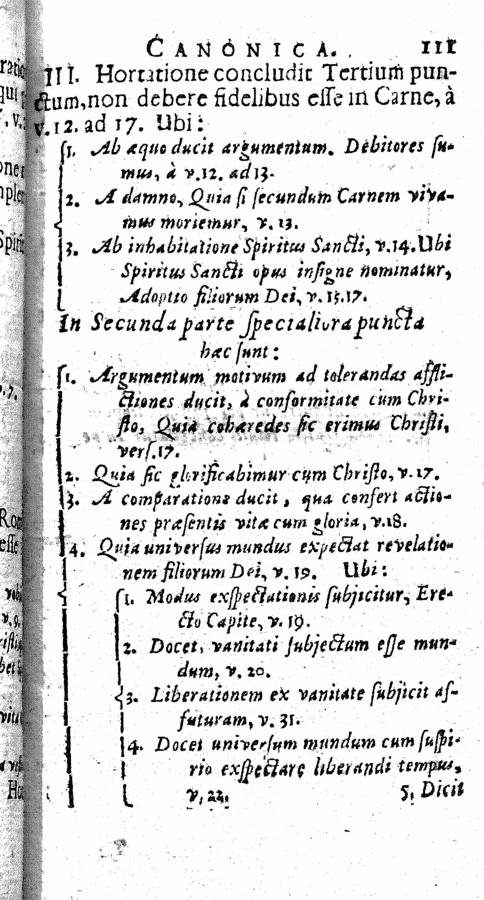 CANONICA. 111
III. Hortatione concludit Tertium pun-
ctum, non debere fidelibus eſſe in Carne, à
v. 12. ad 17. Ubi:
1. Ab æquo ducit argumentum. Debitores ſu-
mus, à v. 12. ad 13.
2. A damno, Quia ſi ſecundum Carnem viva-
mus moriemur, v. 13.
3. Ab inhabitatione Spiritus Sancti, v. 14. Ubi
Spiritus Sancti opus inſigne nominatur,
Adoptio filiorum Dei, v. 15. 17.
In Secunda parte ſpecialiora puncta
hæc ſunt:
1. Argumentum motivum ad tolerandas affli-
ctiones ducit, à conformitate cum Chri-
ſto, Quia cohæredes ſic erimus Chriſti,
verſ. 17.
2. Quia ſic glorificabimur cum Chriſto, v. 17.
3. A comparatione ducit, qua confert actio-
nes præſentis vitæ cum gloria, v. 18.
4. Quia univerſus mundus expectat revelatio-
nem filiorum Dei, v. 19. Ubi:
1. Modus exſpectationis ſubjicitur, Ere-
cto Capite, v. 19.
2. Docet, vanitati ſubjectum eſſe mun-
dum, v. 20.
3. Liberationem ex vanitate ſubjicit af-
futuram, v. 31.
4. Docet univerſum mundum cum ſuſpi-
rio exſpectare liberandi tempus,
v. 22. 5. Dicit